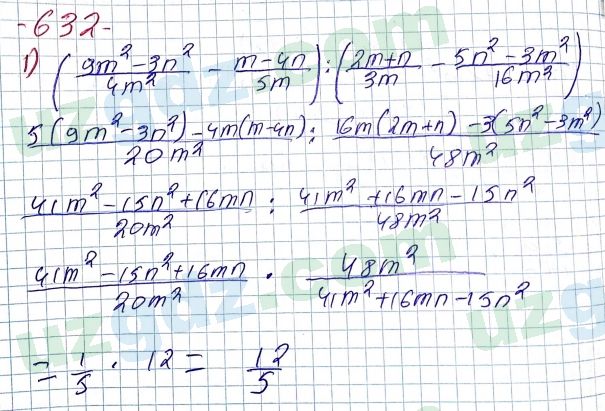 -632-
1) ( (9m² - 3n²)/(4m²) - (m - 4n)/(5m) ) : ( (2m+n)/(3m) - (5n² - 3m²)/(16m²) )
(5(9m² - 3n²) - 4m(m-4n))/(20m²) : (16m(2m+n) - 3(5n² - 3m²))/(48m²)
(41m² - 15n² + 16mn)/(20m²) : (41m² + 16mn - 15n²)/(48m²)
(41m² - 15n² + 16mn)/(20m²) · (48m²)/(41m² + 16mn - 15n²)
= 1/5 · 12 = 12/5
uzgdz.com